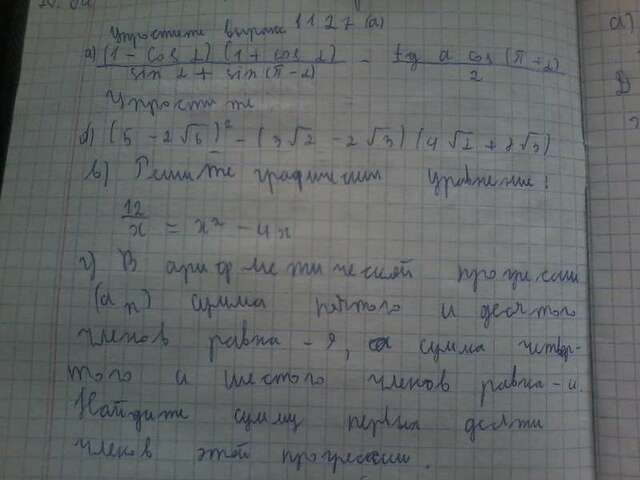 Упростите выраж 1127 (а)
а) (1 - cos α) (1 + cos α) / sin α + sin (π - α) - tg α cos (π + α) / 2
Упростите
б) (5 - 2√6)² - (3√2 - 2√3) (4√2 + 8√3)
в) Решите графически уравнение:
12/x = x² - 4x
г) В арифметической прогрессии
(a n) сумма пятого и десятого
членов равна -9, а сумма четвер-
того и шестого членов равна -4.
Найдите сумму первых десяти
членов этой прогрессии.
а)